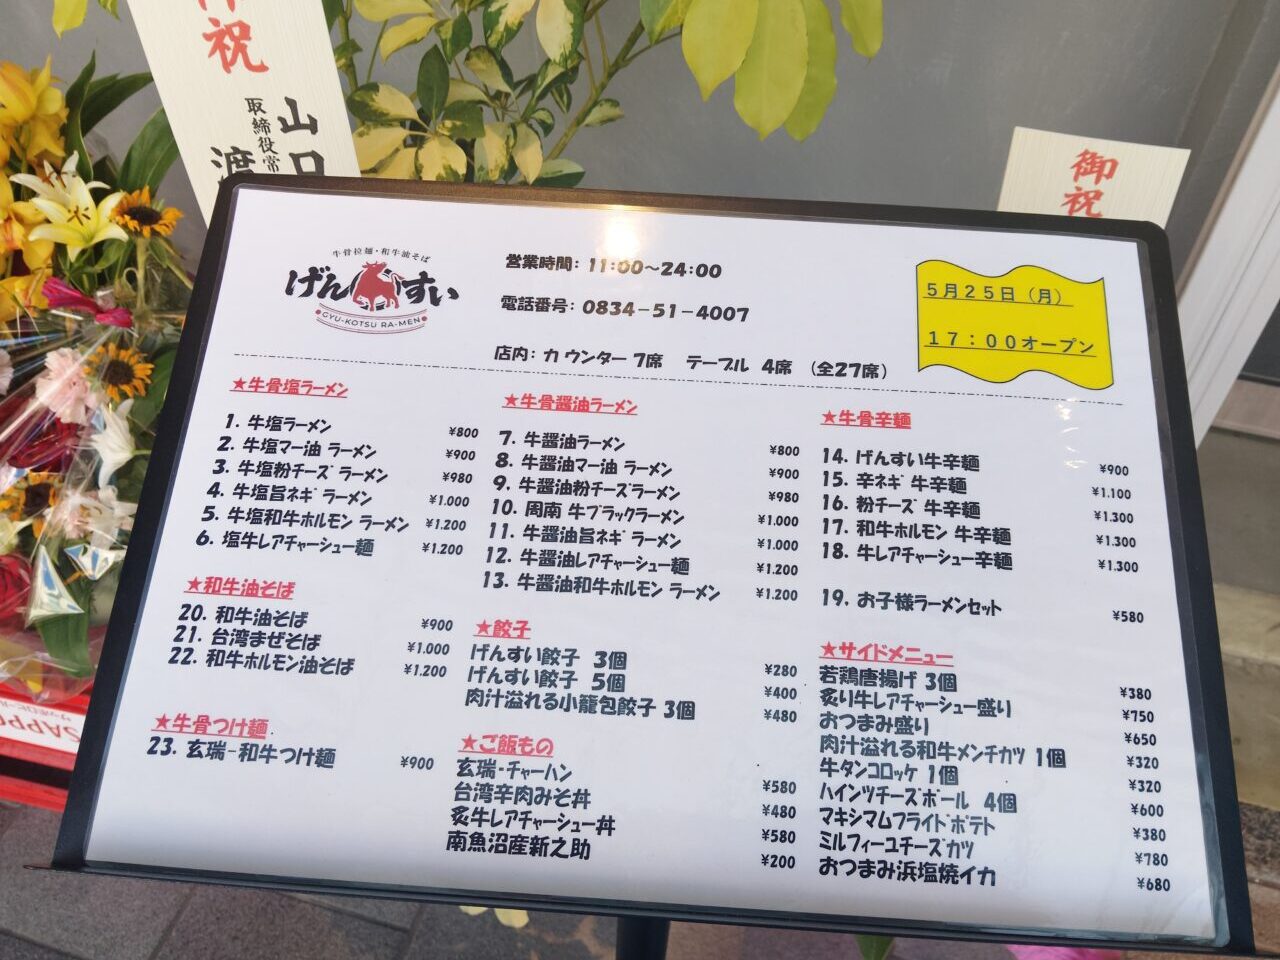 祝
山口
取締役常
渡
御祝
牛骨拉麺・和牛油そば
げんすい
GYU-KOTSU RA-MEN
営業時間: 11:00～24:00
電話番号: 0834-51-4007
店内: カウンター 7席 テーブル 4席 (全27席)
5月25日(月)
17:00オープン
★牛骨塩ラーメン
1. 牛塩ラーメン ¥800
2. 牛塩マー油 ラーメン ¥900
3. 牛塩粉チーズ ラーメン ¥980
4. 牛塩旨ネギ ラーメン ¥1.000
5. 牛塩和牛ホルモン ラーメン ¥1.200
6. 塩牛レアチャーシュー麺 ¥1.200
★和牛油そば
20. 和牛油そば ¥900
21. 台湾まぜそば ¥1.000
22. 和牛ホルモン油そば ¥1.200
★牛骨つけ麺
23. 玄瑞-和牛つけ麺 ¥900
★牛骨醤油ラーメン
7. 牛醤油ラーメン ¥800
8. 牛醤油マー油 ラーメン ¥900
9. 牛醤油粉チーズラーメン ¥980
10. 周南 牛ブラックラーメン ¥1.000
11. 牛醤油旨ネギ ラーメン ¥1.000
12. 牛醤油レアチャーシュー麺 ¥1.200
13. 牛醤油和牛ホルモン ラーメン ¥1.200
★餃子
げんすい餃子 3個 ¥280
げんすい餃子 5個 ¥400
肉汁溢れる小籠包餃子 3個 ¥480
★ご飯もの
玄瑞-チャーハン ¥580
台湾辛肉みそ丼 ¥480
炙牛レアチャーシュー丼 ¥580
南魚沼産新之助 ¥200
★牛骨辛麺
14. げんすい牛辛麺 ¥900
15. 辛ネギ 牛辛麺 ¥1.100
16. 粉チーズ 牛辛麺 ¥1.300
17. 和牛ホルモン 牛辛麺 ¥1.300
18. 牛レアチャーシュー辛麺 ¥1.300
19. お子様ラーメンセット ¥580
★サイドメニュー
若鶏唐揚げ 3個 ¥380
炙り牛レアチャーシュー盛り ¥750
おつまみ盛り ¥650
肉汁溢れる和牛メンチカツ 1個 ¥320
牛タンコロッケ 1個 ¥320
ハインツチーズボール 4個 ¥600
マキシマムフライドポテト ¥380
ミルフィーユチーズカツ ¥780
おつまみ浜塩焼イカ ¥680
SAPPO
サッポロビール